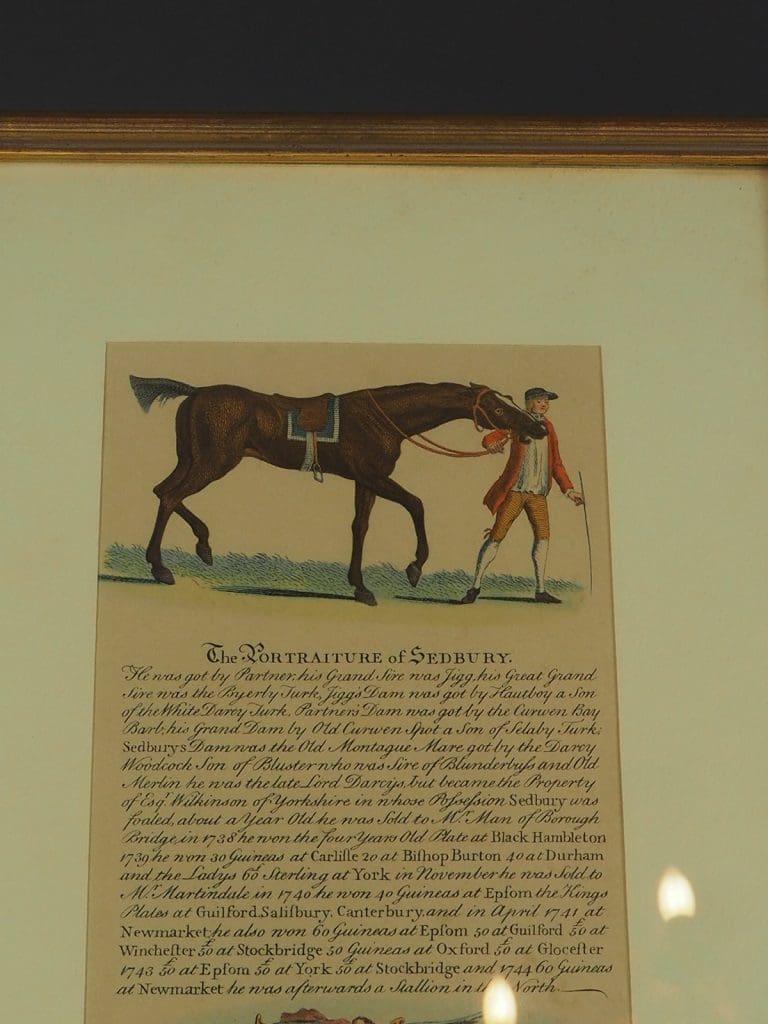 The PORTRAITURE of SEDBURY.
He was got by Partner, his Grand Sire was Jigg, his Great Grand
Sire was the Byerly Turk, Jigg's Dam was got by Hautboy a Son
of the White Darcy Turk, Partner's Dam was got by the Curwen Bay
Barb, his Grand Dam by Old Curwen Spot a Son of Selaby Turk;
Sedburys Dam was the Old Montague Mare got by the Darcy
Woodcock Son of Bluster who was Sire of Blunderbuſs and Old
Merlin he was the late Lord Darcijs, but became the Property
of Esqr. Wilkinson of Yorkshire in whose Poſseſsion Sedbury was
foaled, about a Year Old he was Sold to Mr. Man of Borough
Bridge, in 1738 he won the four Years Old Plate at Black Hambleton
1739 he won 30 Guineas at Carliſle 20 at Biſhop Burton 40 at Durham
and the Ladys 60£ Sterling at York in November he was Sold to
Mr. Martindale, in 1740 he won 40 Guineas at Epſom the Kings
Plates at Guilford, Saliſbury, Canterbury, and in April 1741 at
Newmarket, he also won 60 Guineas at Epſom 50 at Guilford £50 at
Wincheſter £50 at Stockbridge 50 Guineas at Oxford £50 at Gloceſter
1743 £50 at Epſom £50 at York £50 at Stockbridge and 1744 60 Guineas
at Newmarket he was afterwards a Stallion in the North.